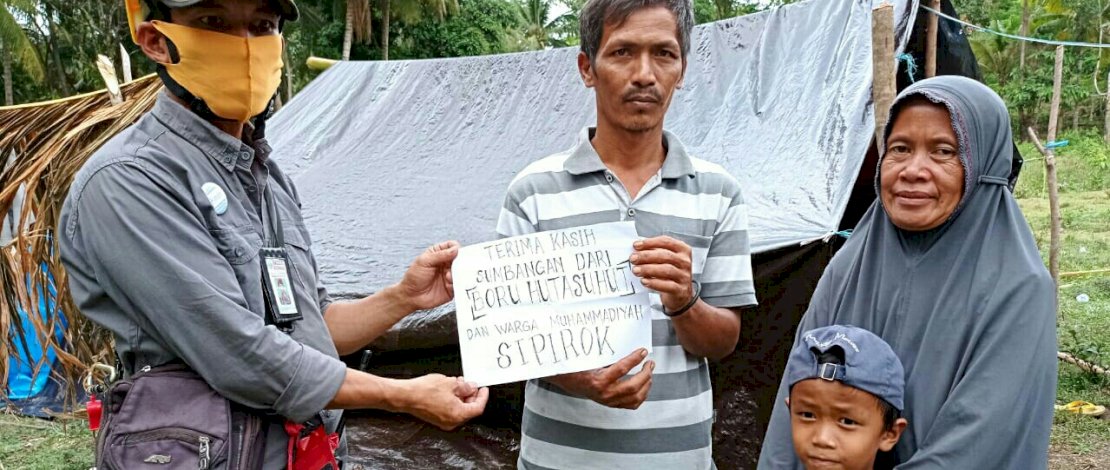 TERIMA KASIH
SUMBANGAN DARI
[BORU HUTASUHUT]
DAN WARGA MUHAMMADIYAH
SIPIROK